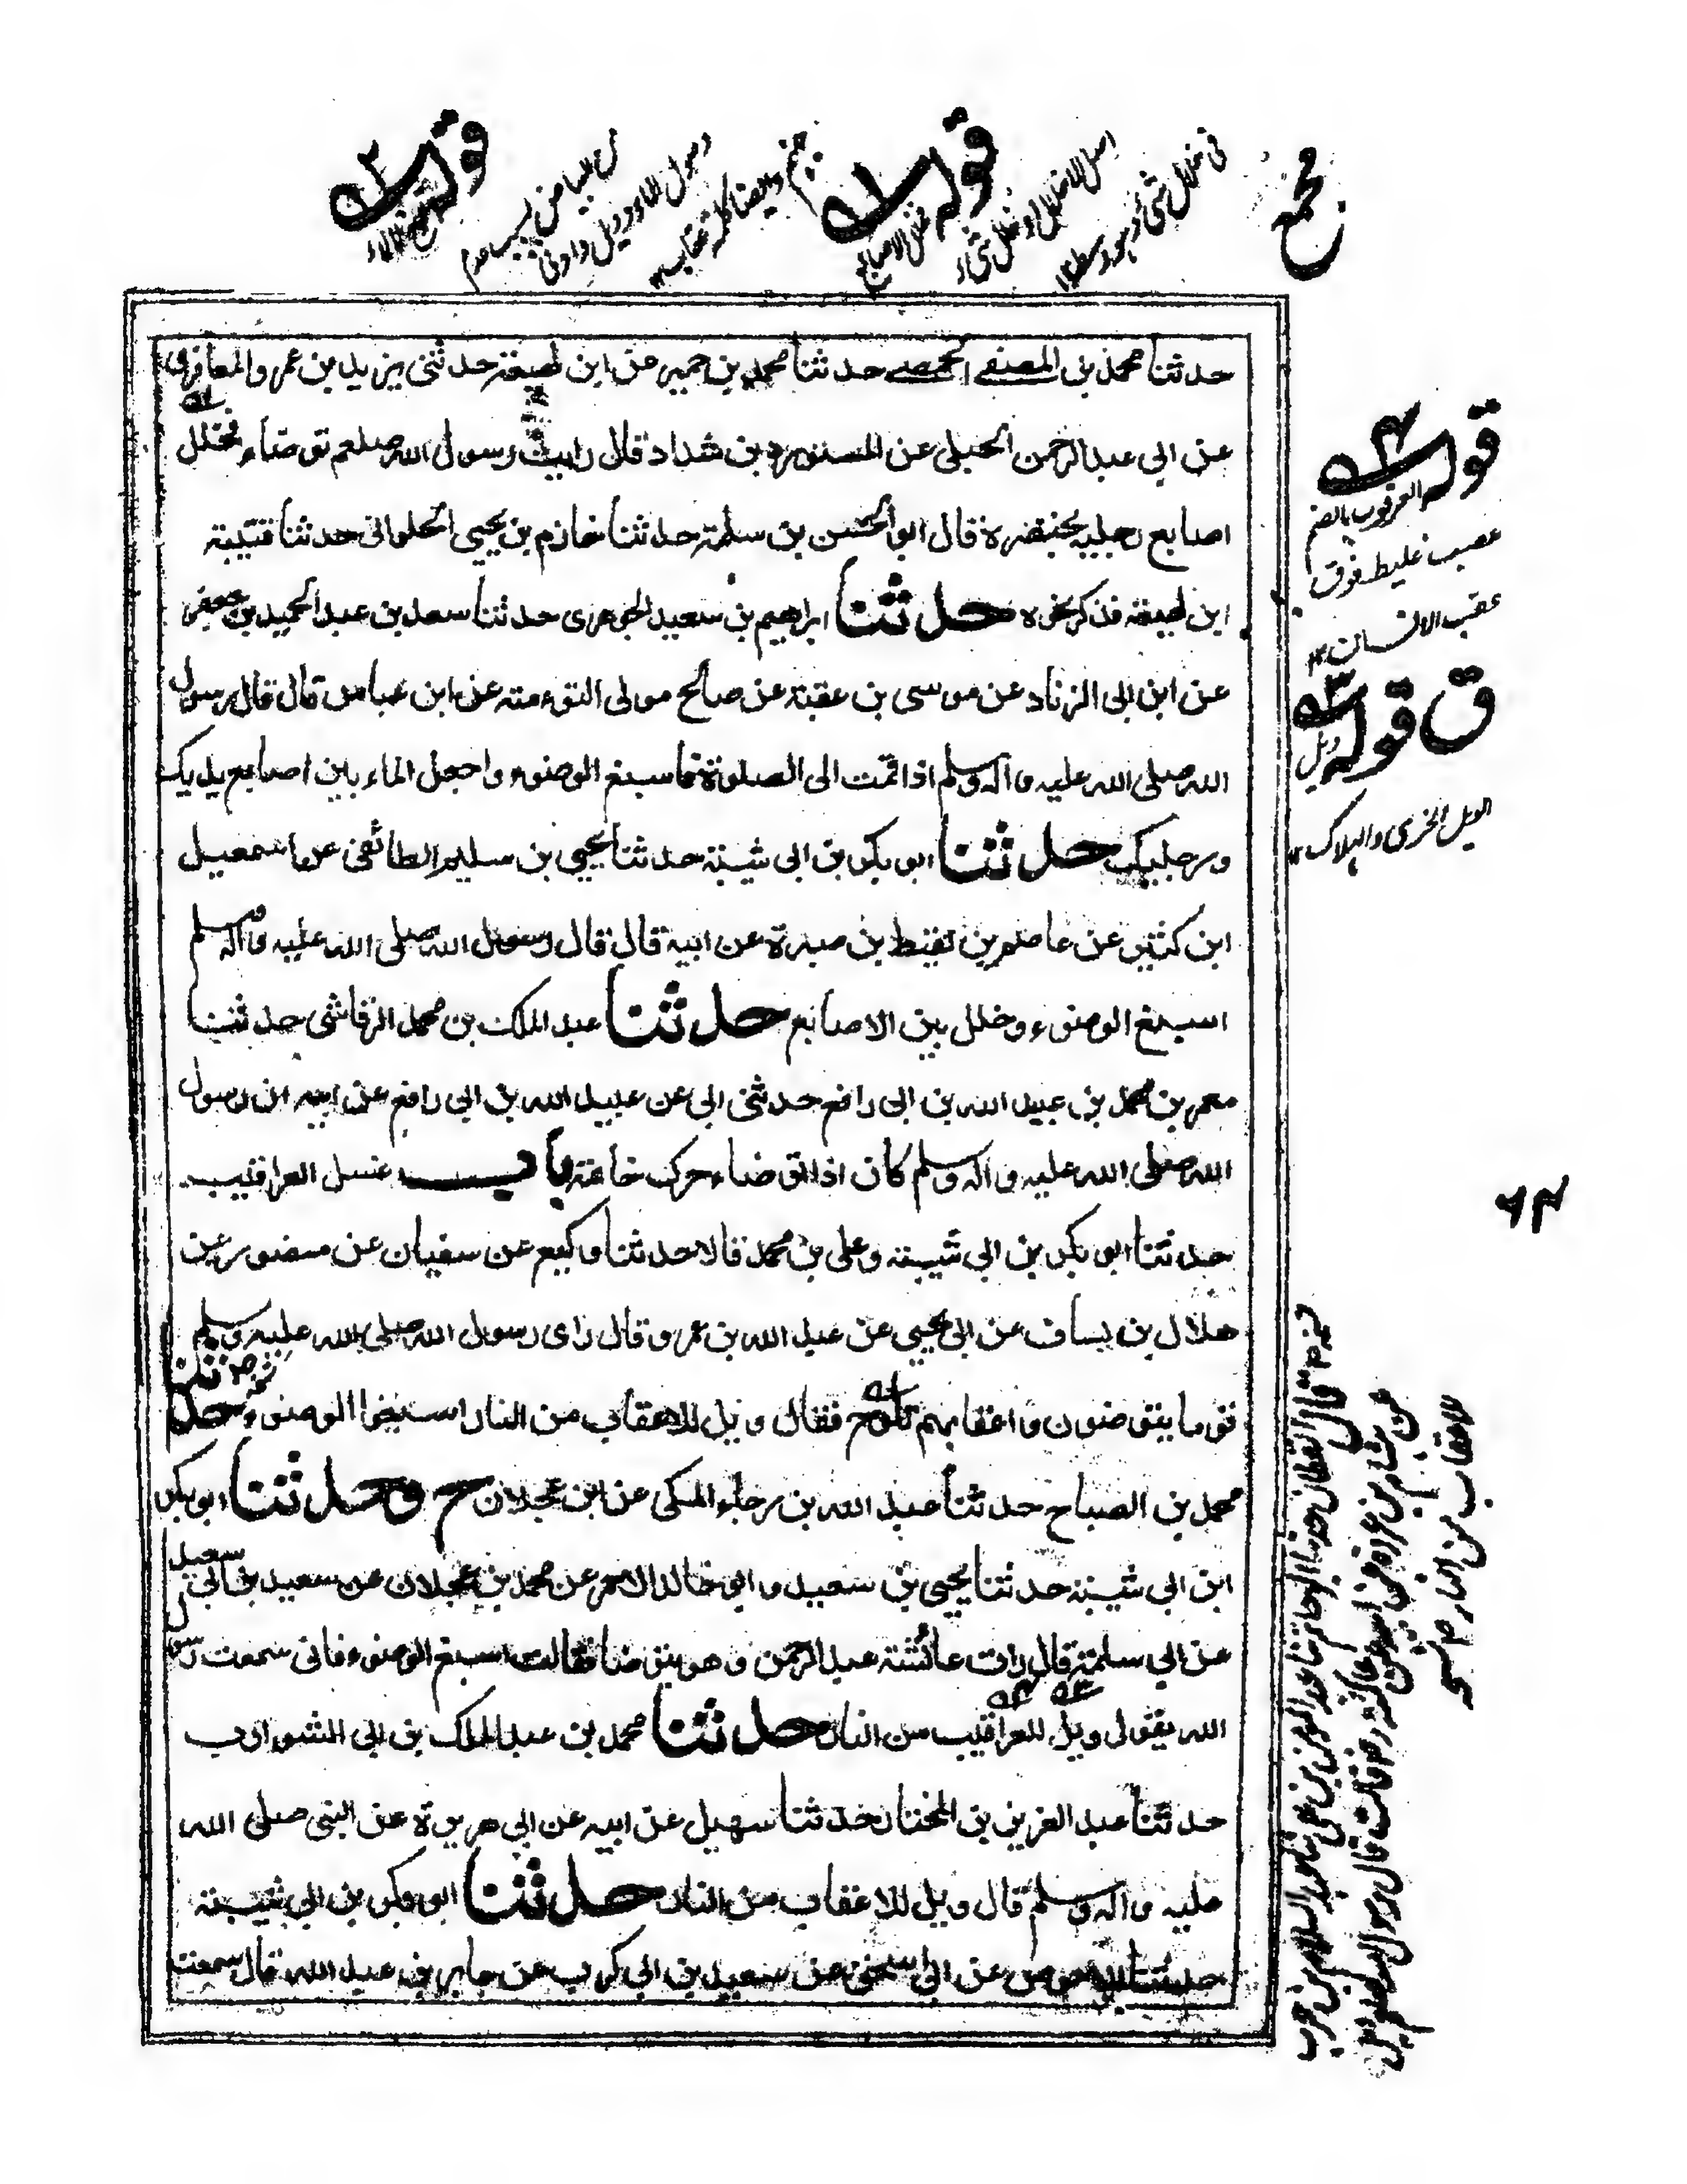 قوله
قوله
مجمع
حدثنا محمد بن المصفى الحمصي حدثنا محمد بن حمير عن ابن لهيعة حدثني يزيد بن عمرو المعافري
عن ابي عبد الرحمن الحبلي عن المستورد بن شداد قال رايت رسول الله صلعم توضاء فخلل
اصابع رجليه بخنصره قال ابو الحسن بن سلمة حدثنا خازم بن يحيى الحلواني حدثنا قتيبة
ابن لهيعة فذكر نحوه حدثنا ابراهيم بن سعيد الجوهري حدثنا سعد بن عبد الحميد بن جعفر
عن ابن ابي الزناد عن موسى بن عقبة عن صالح مولى التوءمة عن ابن عباس قال قال رسول
الله صلى الله عليه وآله وسلم اذا قمت الى الصلوة فاسبغ الوضوء واجعل الماء بين اصابع يديك
ورجليك حدثنا ابو بكر بن ابي شيبة حدثنا يحيى بن سليم الطائفي عن اسمعيل
ابن كثير عن عاصم بن لقيط بن صبرة عن ابيه قال قال رسول الله صلى الله عليه وآله وسلم
اسبغ الوضوء وخلل بين الاصابع حدثنا عبد الملك بن محمد الرقاشي حدثنا
معمر بن محمد بن عبيد الله بن ابي رافع حدثني ابي عن عبيد الله بن ابي رافع عن ابيه ان رسول
الله صلى الله عليه وآله وسلم كان اذا توضاء حرك خاتمه باب غسل العراقيب
حدثنا ابو بكر بن ابي شيبة وعلي بن محمد قالا حدثنا وكيع عن سفيان عن منصور عن
هلال بن يساف عن ابي يحيى عن عبد الله بن عمرو قال راى رسول الله صلى الله عليه وسلم
قوما يتوضئون واعقابهم تلوح فقال ويل للاعقاب من النار اسبغوا الوضوء حدثنا
محمد بن الصباح حدثنا عبد الله بن رجاء المكي عن ابن عجلان ح وحدثنا ابو بكر
ابن ابي شيبة حدثنا يحيى بن سعيد وابو خالد الاحمر عن محمد بن عجلان عن سعيد بن ابي سعيد
عن ابي سلمة قال رات عائشة عبد الرحمن وهو يتوضا فقالت اسبغ الوضوء فاني سمعت رسول
الله يقول ويل للعراقيب من النار حدثنا محمد بن عبد الملك بن ابي الشوارب
حدثنا عبد العزيز بن المختار حدثنا سهيل عن ابيه عن ابي هريرة عن النبي صلى الله
عليه وآله وسلم قال ويل للاعقاب من النار حدثنا ابو بكر بن ابي شيبة
حدثنا ابو الاحوص عن ابي اسحق عن سعيد بن ابي كرب عن جابر بن عبد الله قال سمعت
قوله العرقوب بالضم
عصب غليظ فوق
عقب الانسان ١٢
ق قوله ويل
الويل الخزي والهلاك ١٢
٦٣
قال القطان حدثنا ابو حاتم
للاعقاب من النار